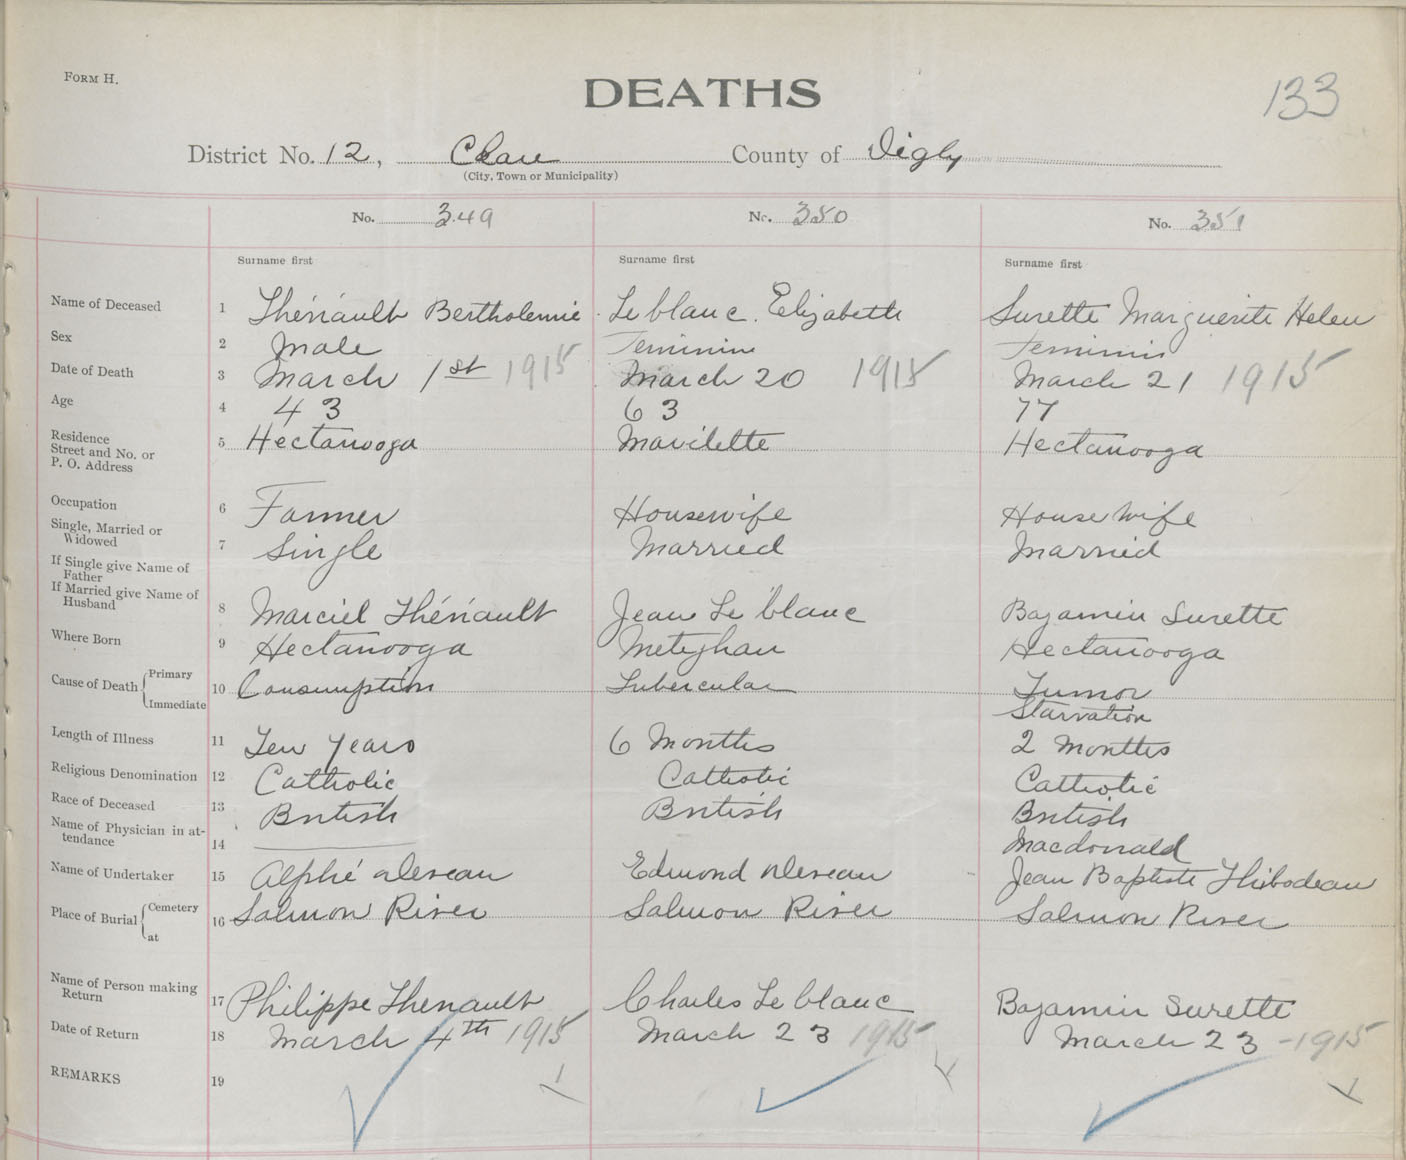 FORM H.
DEATHS
133
District No. 12, Clare County of Digby
(City, Town or Municipality)
No. 349 No. 350 No. 351
Surname first Surname first Surname first
Name of Deceased 1 Thériault Bertholemie Le blanc. Elizabeth Surette Marguerite Helen
Sex 2 Male Feminine Feminin
Date of Death 3 March 1st 1915 March 20 1915 March 21 1915
Age 4 43 63 77
Residence
Street and No. or
P. O. Address 5 Hectanooga Mavilette Hectanooga
Occupation 6 Farmer Housewife House wife
Single, Married or
Widowed 7 Single Married Married
If Single give Name of
Father
If Married give Name of
Husband 8 Marciel Thériault Jean Le blanc Bajamin Surette
Where Born 9 Hectanooga Meteghan Hectanooga
Cause of Death Primary
Immediate 10 Consumption Tubercular Tumor
Starvation
Length of Illness 11 Ten years 6 Months 2 Months
Religious Denomination 12 Catholic Catholic Catholic
Race of Deceased 13 British British British
Name of Physician in at-
tendance 14 Macdonald
Name of Undertaker 15 Alphé deveau Edmond deveau Jean Baptiste Thibodeau
Place of Burial Cemetery
at 16 Salmon River Salmon River Salmon River
Name of Person making
Return 17 Philippe Theriault Charles Le blanc Bajamin Surette
Date of Return 18 March 4th 1915 March 23 1915 March 23 - 1915
REMARKS 19